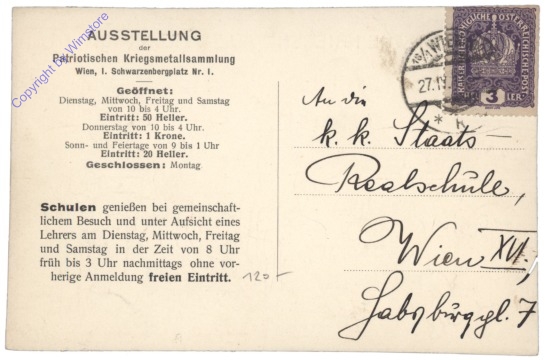 AUSSTELLUNG
der
Patriotischen Kriegsmetallsammlung
Wien, I. Schwarzenbergplatz Nr. 1.
Geöffnet:
Dienstag, Mittwoch, Freitag und Samstag
von 10 bis 4 Uhr.
Eintritt: 50 Heller.
Donnerstag von 10 bis 4 Uhr.
Eintritt: 1 Krone.
Sonn- und Feiertage von 9 bis 1 Uhr
Eintritt: 20 Heller.
Geschlossen: Montag
Schulen genießen bei gemeinschaft-
lichem Besuch und unter Aufsicht eines
Lehrers am Dienstag, Mittwoch, Freitag
und Samstag in der Zeit von 8 Uhr
früh bis 3 Uhr nachmittags ohne vor-
herige Anmeldung freien Eintritt.
120-
Copyright by Wimstore
KAISERLICHE KÖNIGLICHE ÖSTERREICHISCHE POST
3
10/1 WIEN
27.IV
An die
k. k. Staats-
Realschule,
Wien XVI.,
Habsburggl. 7